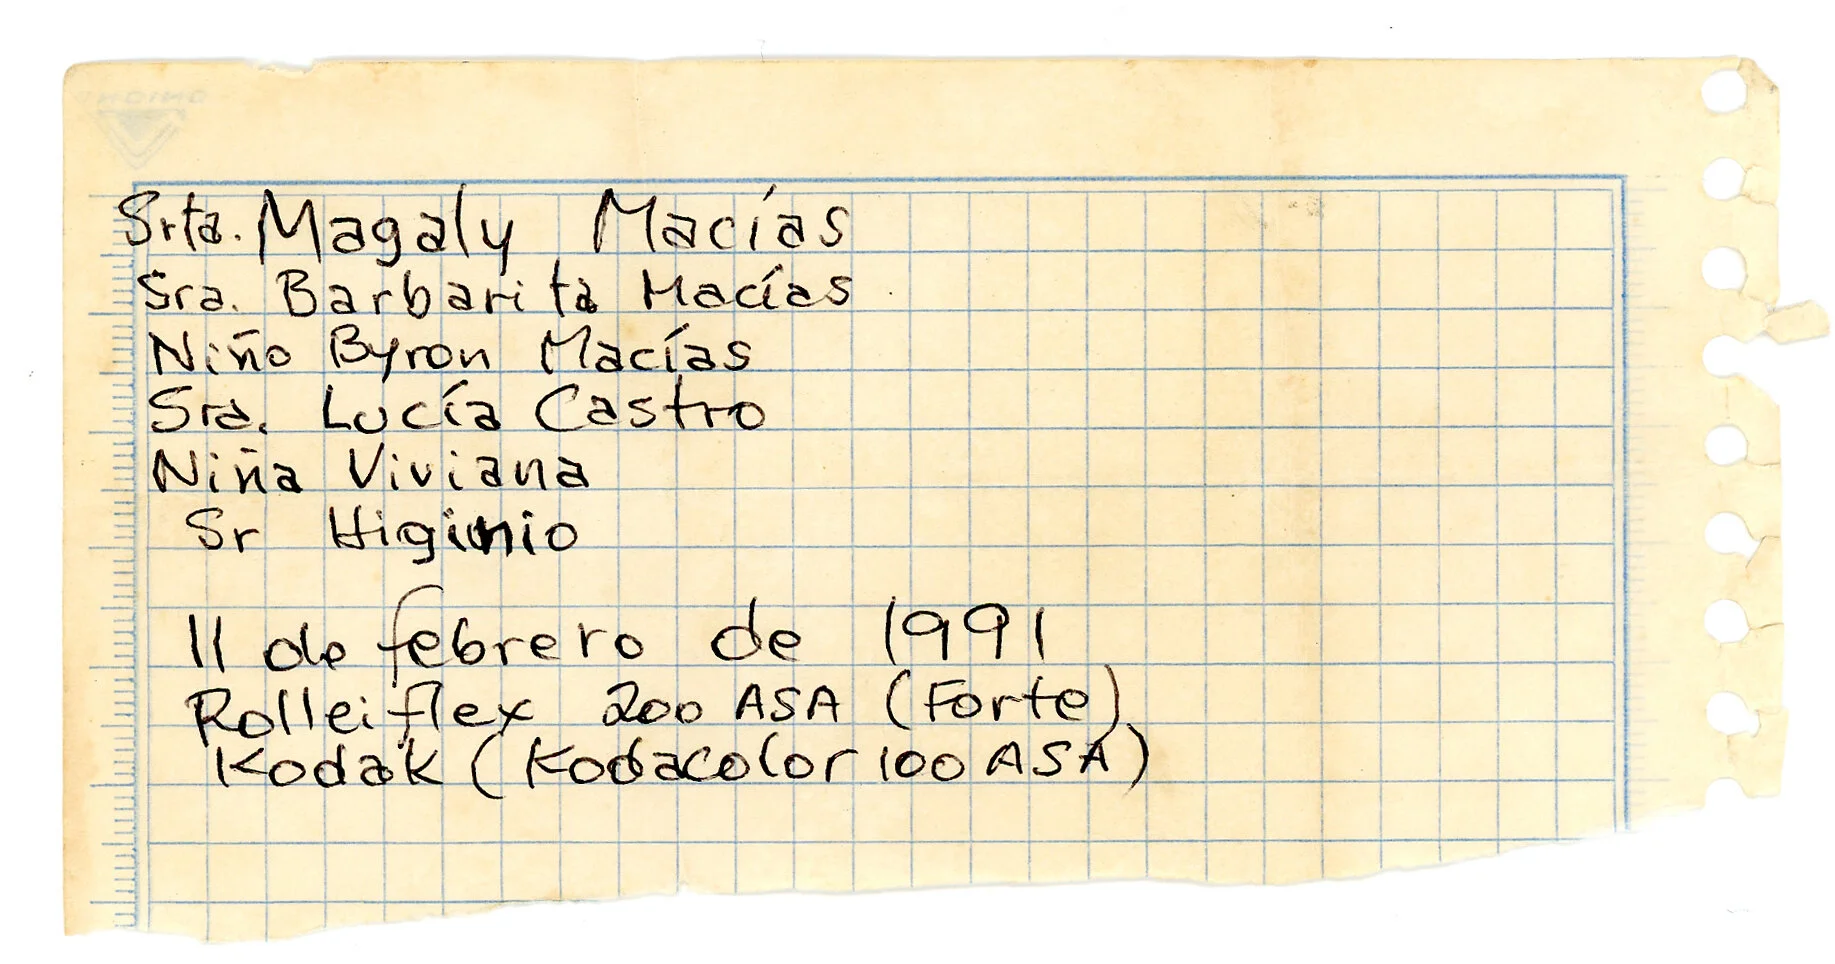 Srta. Magaly Macías
Sra. Barbarita Macías
Niño Byron Macías
Sra. Lucía Castro
Niña Viviana
Sr Higinio
11 de febrero de 1991
Rolleiflex 200 ASA (Forte)
Kodak (Kodacolor 100 ASA)